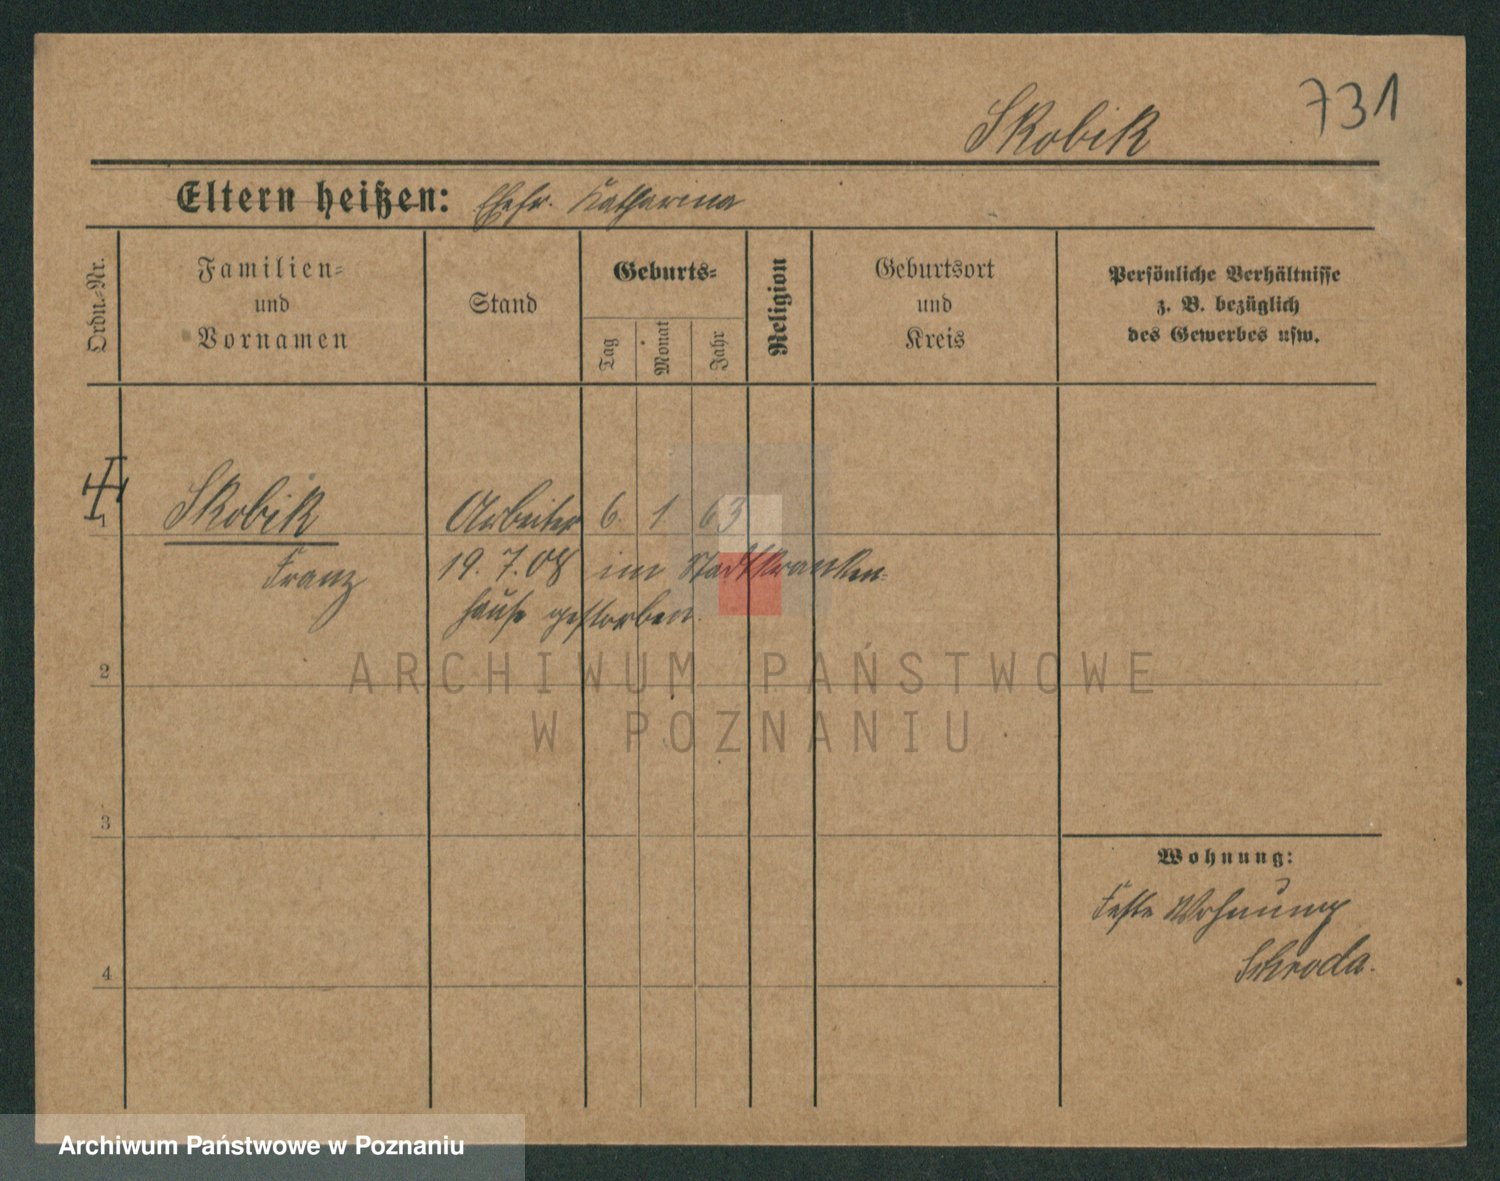 731
Skobik
Eltern heißen: Ehefr. Katharina
Ordn.-Nr.
Familien-
und
Vornamen
Stand
Geburts-
Tag
Monat
Jahr
Religion
Geburtsort
und
Kreis
Persönliche Verhältnisse
z. B. bezüglich
des Gewerbes usw.
1 Skobik Arbeiter 6. 1 63
Franz 19. 7. 08 im Stadtkranken-
hause gestorben.
2
ARCHIWUM PAŃSTWOWE
W POZNANIU
3
Wohnung:
Feste Wohnung
Schroda.
4
Archiwum Państwowe w Poznaniu